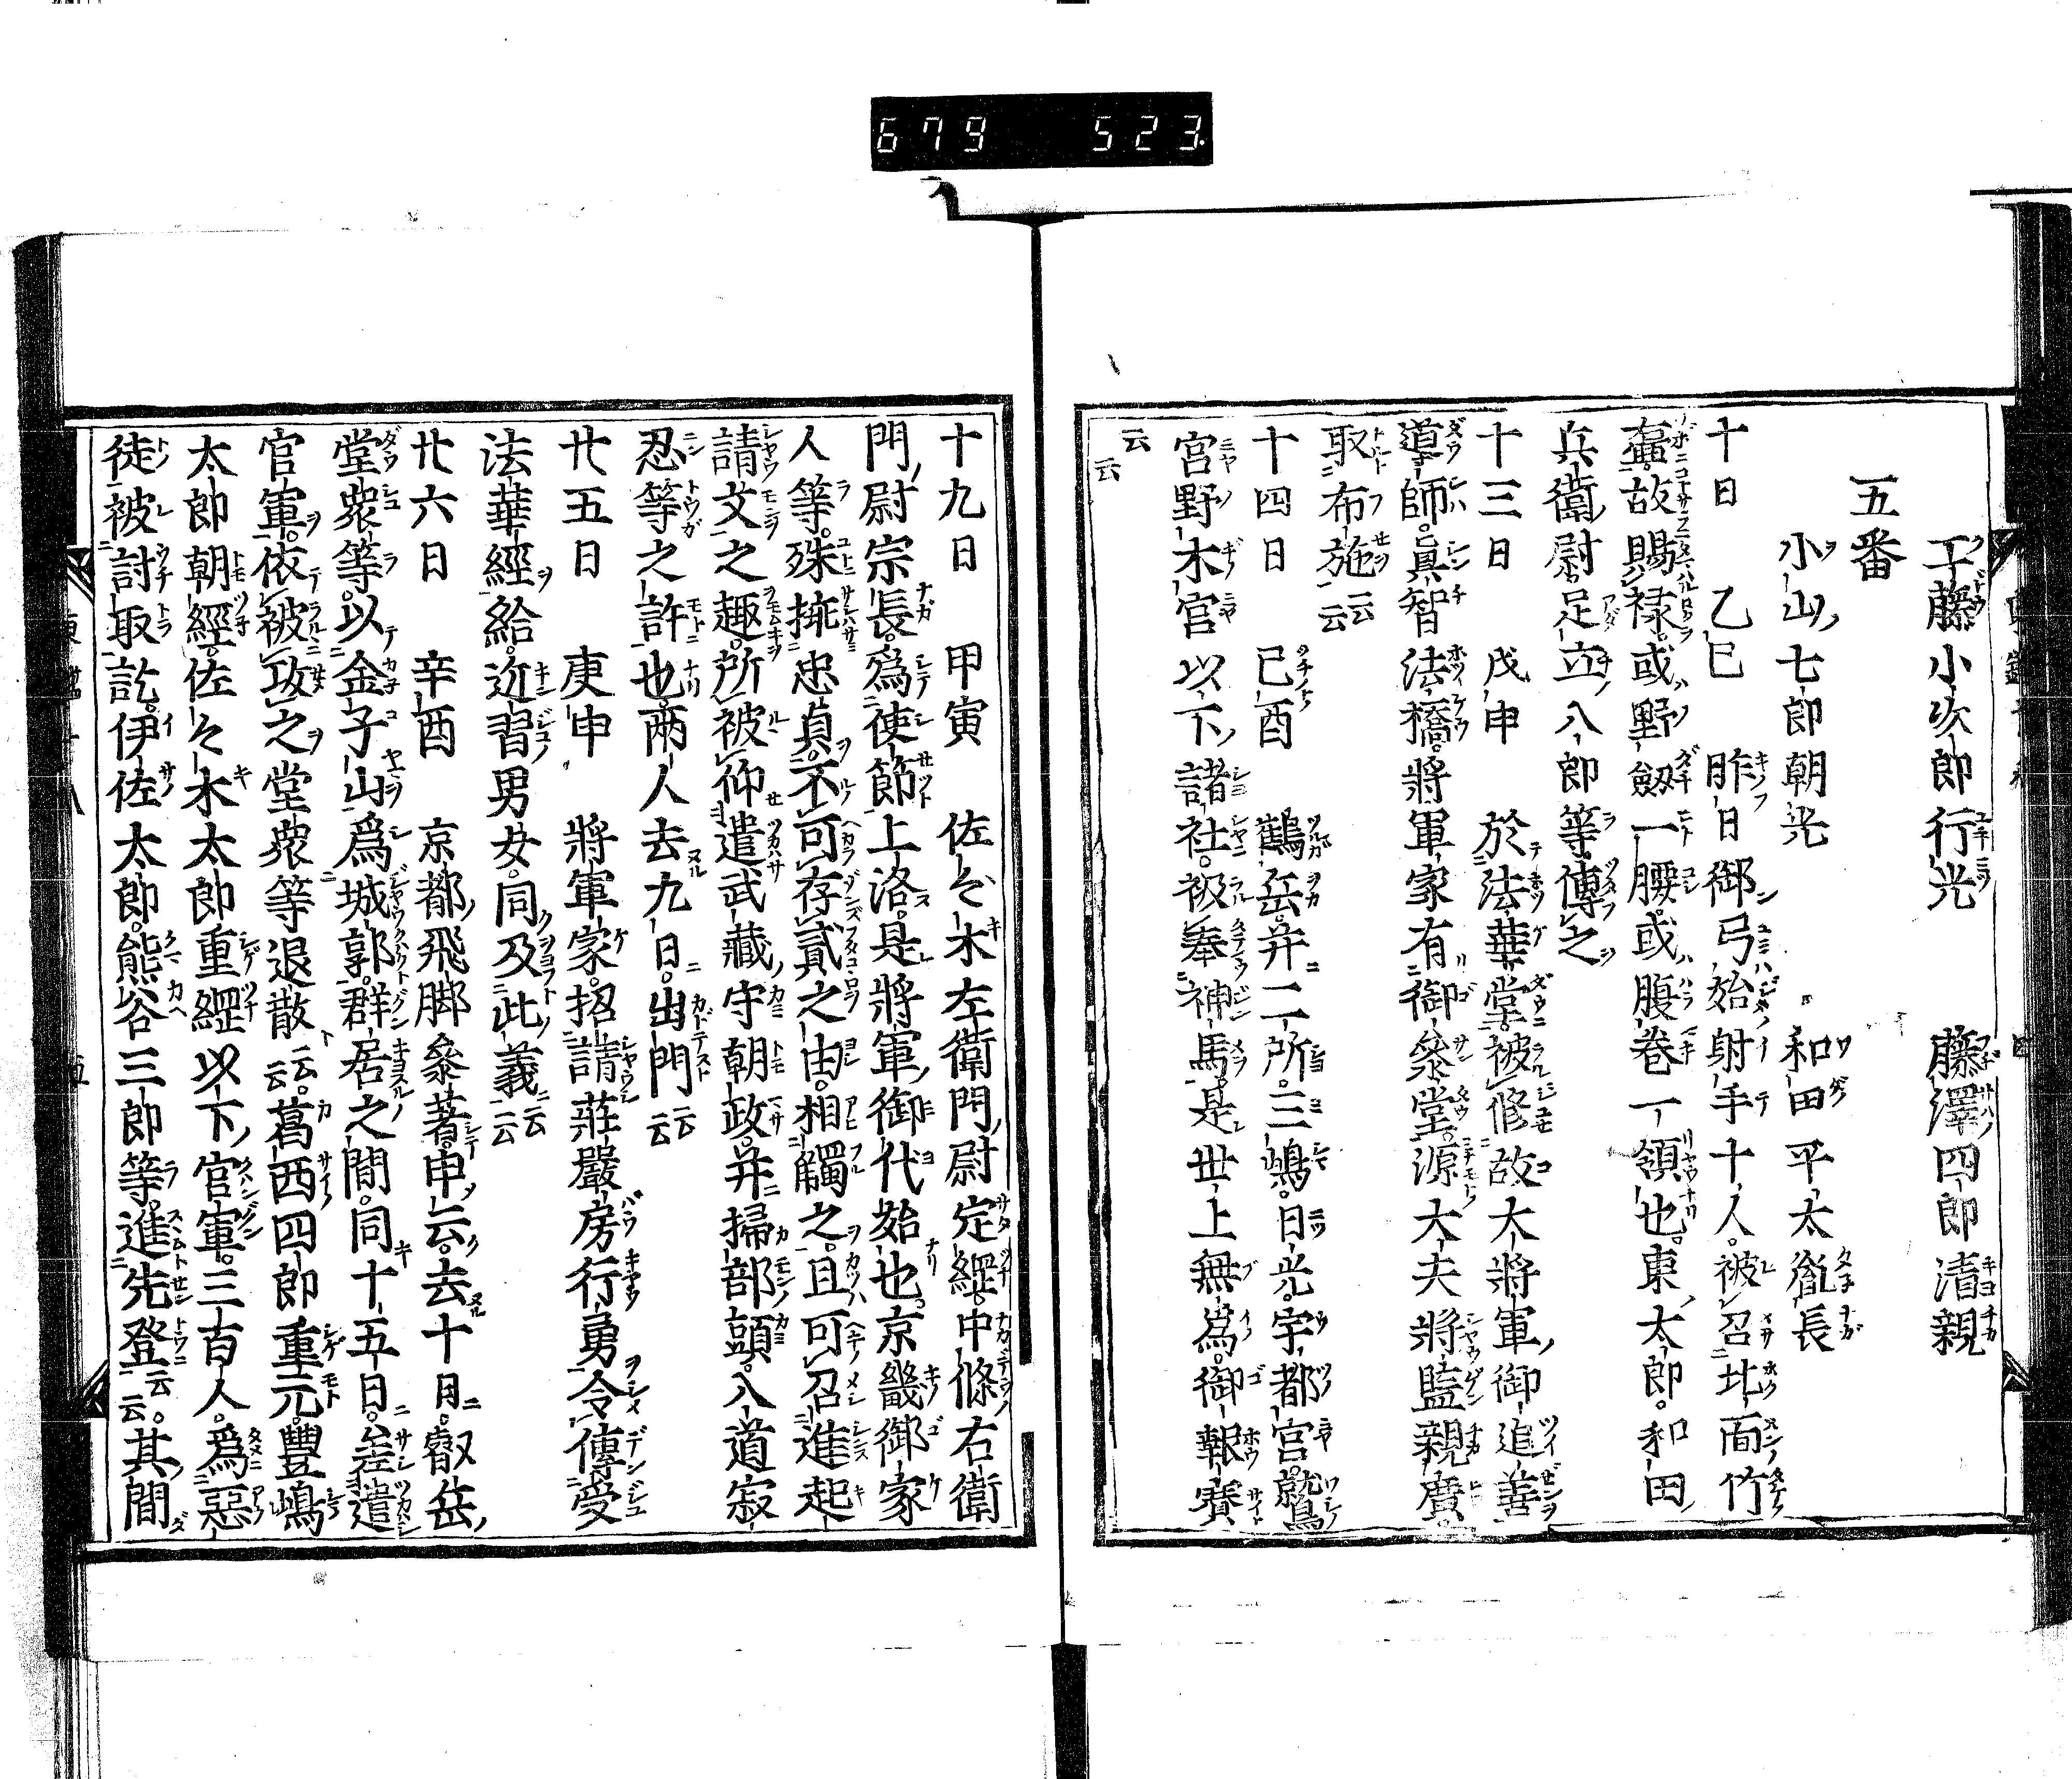 679 523
工藤小次郎行光 藤澤四郎清親
五番
小山七郎朝光 和田平太胤長
十日 乙巳 昨日御弓始射手十人。被召北面竹
壷。故賜禄。或野劔一腰。或腹巻一領也。東太郎。和田
兵衛尉足立八郎等傳之
十三日 戊申 於法華堂被修故大將軍御追善
導師眞智法橋。將軍家有御參堂。源大夫將監親廣
取布施云云
十四日 己酉 鶴岳。并二所。三嶋。日光。宇都宮。鷲
宮野木宮以下諸社。被奉神馬。是世上無爲。御報賽
云云
十九日 甲寅 佐々木左衛門尉定經。中條右衛
門尉宗長。爲使節上洛。是將軍御代始也。京畿御家
人等。殊挿忠貞。不可存貳之由。相觸之。且可召進起
請文之趣。所被仰遣武藏守朝政。并掃部頭入道寂
忍等之許也。兩人去九日。出門云云
廿五日 庚申 將軍家。招請莊嚴房行勇令傳受
法華經給。近習男女。同及此義云云
廿六日 辛酉 京都飛脚參著。申云。去十月。叡岳
堂衆等。以金子山爲城郭。群居之間。同十五日。差遣
官軍。依被攻之堂衆等退散云云。葛西四郎重元。豐嶋
太郎朝經。佐々木太郎重經以下官軍。三百人。爲惡
徒被討取訖。伊佐太郎。熊谷三郎等。進先登云云。其間